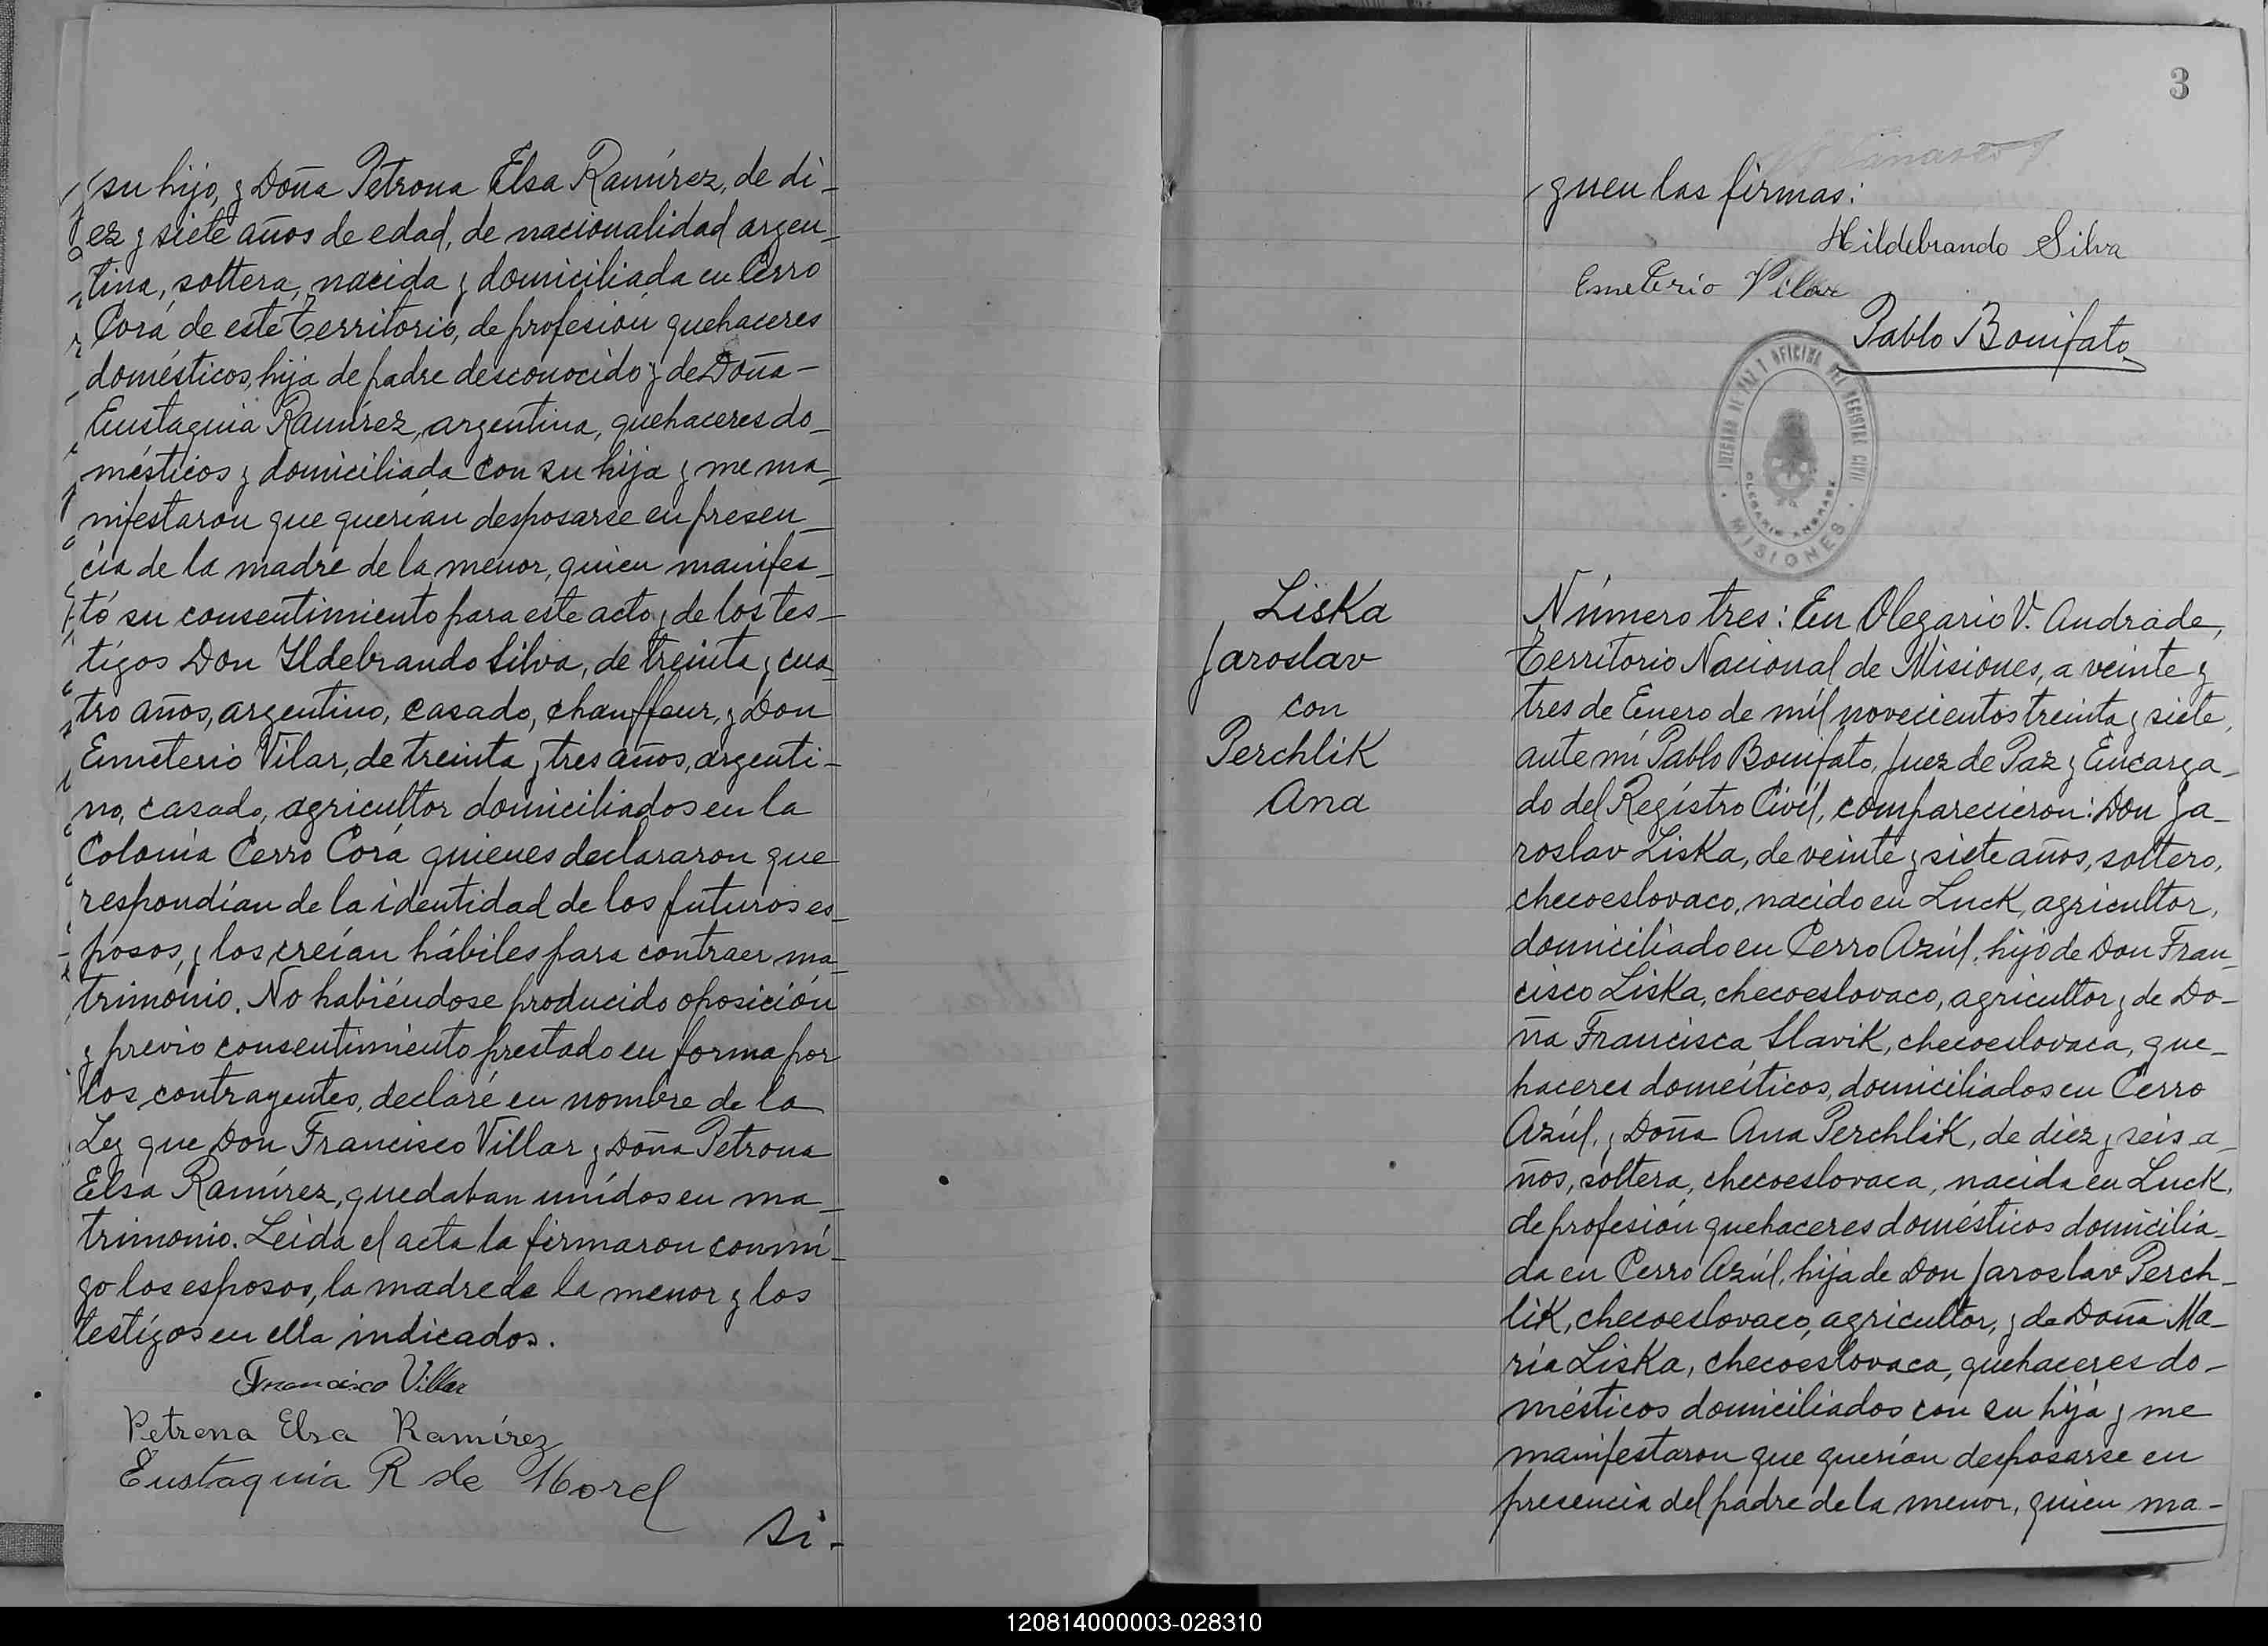 su hijo, y Doña Petrona Elsa Ramírez, de di-
ez y siete años de edad, de nacionalidad argen-
tina, soltera, nacida y domiciliada en Cerro
Corá de este territorio, de profesión quehaceres
domésticos, hija de padre desconocido y de Doña
Eustaquia Ramírez, argentina, quehaceres do-
mésticos y domiciliada con su hija y me ma-
nifestaron que querían desposarse en presen-
cia de la madre de la menor, quien manifes-
tó su consentimiento para este acto y de los tes-
tigos Don Yldebrando Silva, de treinta y cua-
tro años, argentino, casado, chauffeur, y Don
Emeterio Vilar, de treinta y tres años, argenti-
no, casado, agricultor domiciliados en la
Colonia Cerro Corá quienes declararon que
respondían de la identidad de los futuros es-
posos, y los creían hábiles para contraer ma-
trimonio. No habiéndose producido oposición
y previo consentimiento prestado en forma por
los contrayentes, declaré en nombre de la
Ley que Don Francisco Villar y Doña Petrona
Elsa Ramírez, quedaban unidos en ma-
trimonio. Leída el acta la firmaron conmi-
go los esposos, la madre de la menor y los
testigos en ella indicados.
Francisco Villar
Petrona Elsa Ramírez
Eustaquia R de Morel
si-
3
guen las firmas:
Hildebrando Silva
Emeterio Vilar
Pablo Bonifato
JUZGADO DE PAZ Y OFICINA DEL REGISTRO CIVIL
OLEGARIO ANDRADE
MISIONES
Liska
Jaroslav
con
Perchlik
Ana
Número tres: En Olegario V. Andrade,
Territorio Nacional de Misiones, a veinte y
tres de Enero de mil novecientos treinta y siete,
ante mí Pablo Bonifato, Juez de Paz y Encarga-
do del Registro Civil, comparecieron: Don Ja-
roslav Liska, de veinte y siete años, soltero,
checoeslovaco, nacido en Luck, agricultor,
domiciliado en Cerro Azúl, hijo de Don Fran-
cisco Liska, checoeslovaco, agricultor y de Do-
ña Francisca Slavik, checoeslovaca, que-
haceres domésticos, domiciliados en Cerro
Azúl, y Doña Ana Perchlik, de diez y seis a-
ños, soltera, checoeslovaca, nacida en Luck,
de profesión quehaceres domésticos domicilia-
da en Cerro Azúl, hija de Don Jaroslav Perch-
lik, checoeslovaco, agricultor, y de Doña Ma-
ría Liska, checoeslovaca, quehaceres do-
mésticos domiciliados con su hija y me
manifestaron que querían desposarse en
presencia del padre de la menor, quien ma-
120814000003-028310